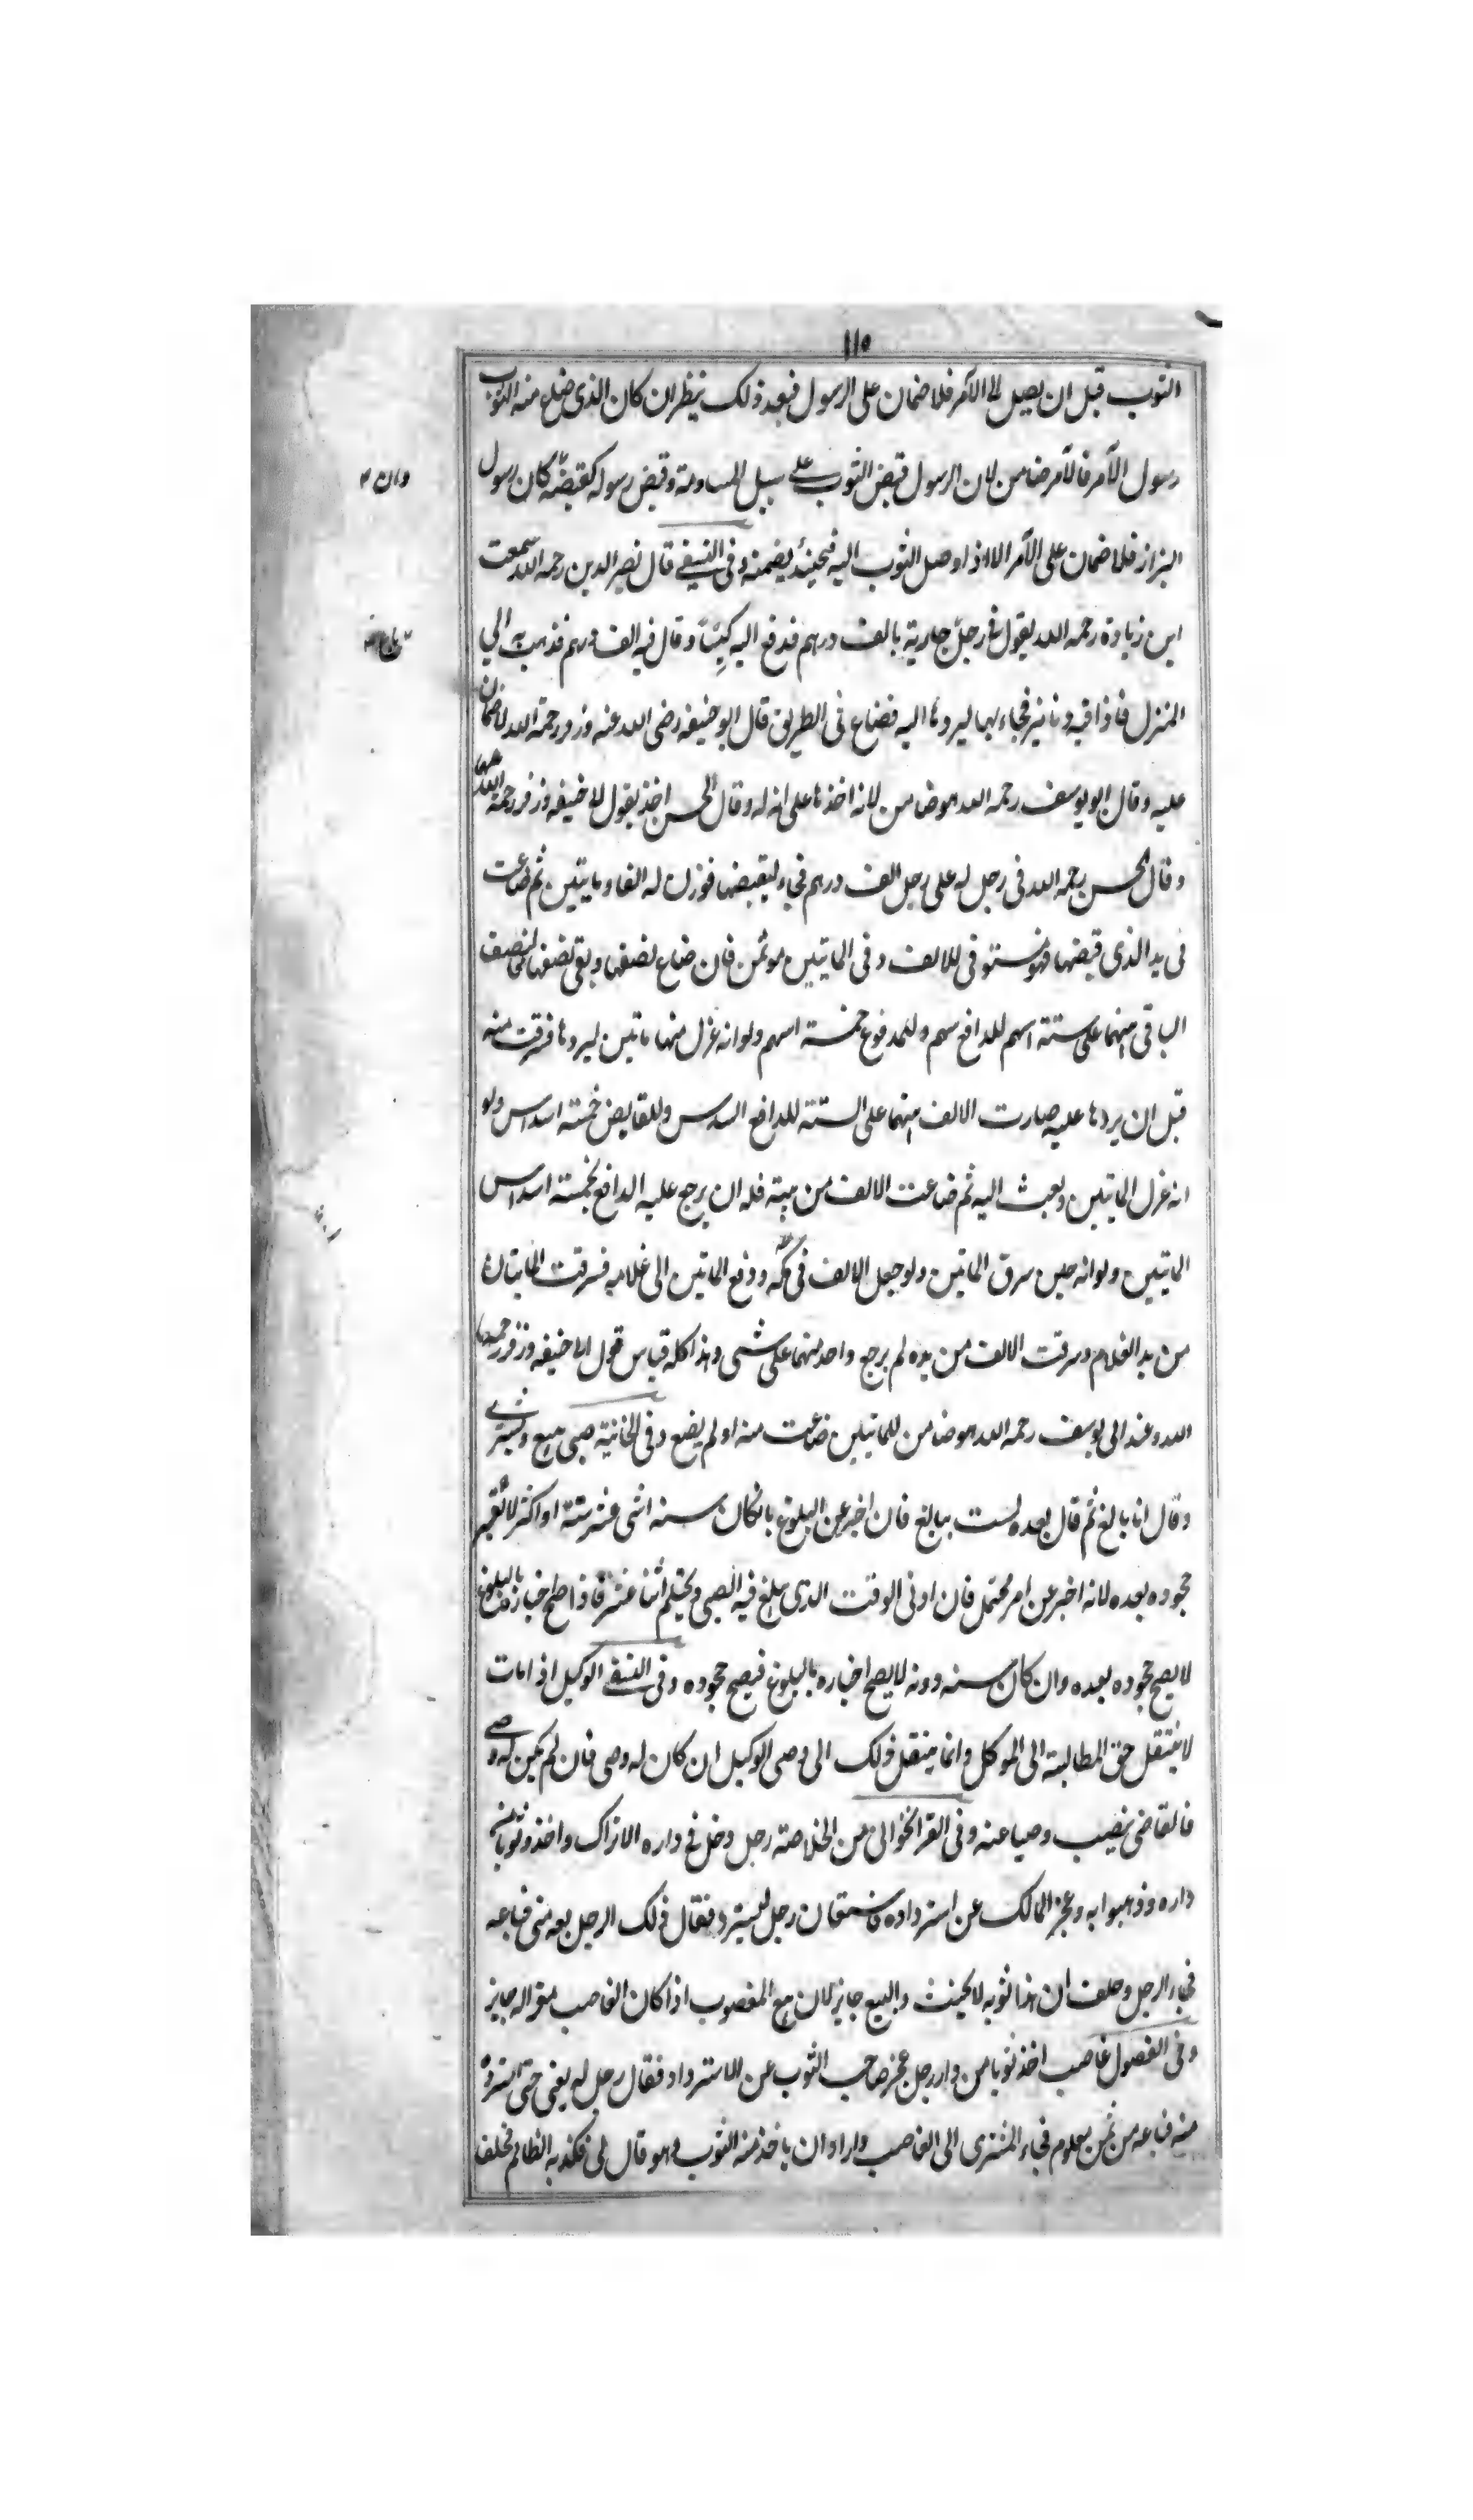 ١١٥
الثوب قبل ان يصل الى الآمر فلا ضمان على الرسول فبعد ذلك ينظر ان كان الذى ضاع منه الثوب
رسول الآمر فالآمر ضامن لان الرسول قبض الثوب على سبيل المساومة وقبض رسوله كقبضه كان رسول
وان
البزاز فلا ضمان على الآمر الا اذا وصل الثوب اليه فحينئذ يضمنه وفى النسفے قال نصير الدين رحمه الله سمعت
ابن زيادة رحمه الله يقول فى رجل جارية بالف درهم فدفع اليه كيسًا وقال فيه الف درهم فذهب به الي
باع من
المنزل فاذا فيه دنانير فجاء بها ليردها اليه فضاع فى الطريق قال ابو حنيفه رضى الله عنه وزفر رحمة الله لا ضمان
عليه وقال ابو يوسف رحمه الله هو ضامن لانه اخذها على انه له وقال الحسن اخذ بقول ابى حنيفه وزفر رحمة الله
وقال الحسن رحمه الله فى رجل له على رجل الف درهم فجاء ليقبضها فوزن له الفا ومايتين ثم ضاعت
فى يد الذى قبضها فهو مستوفى للالف وفى المايتين موتمن فان ضاع نصفها وبقى نصفها فالنصف
الباقى بينهما على ستة اسهم للدافع سهم وللمدفوع خمسة اسهم ولو انه عزل منها ماتين ليردها فسرقت منه
قبل ان يردها عليه صارت الالف بينهما على الستة للدافع السدس وللقابض خمسة اسداس ولو
انه عزل المايتين وبعث اليه ثم ضاعت الالف من بيته فله ان يرجع عليه الدافع بخمسة اسداس
المايتين ولو انه حين سرق الماتين ولو جعل الالف فى كمه ودفع الماتين الى غلامه فسرقت المايتان
من يد الغلام وسرقت الالف من يده لم يرجع واحد منهما على شى وهذا كله قياس قول ابى حنيفه وزفر رحمهما
الله وعند ابى يوسف رحمه الله هو ضامن للماتين ضاعت منه او لم يضع وفى الخانية صبى يبيع ويشترے
وقال انا بالغ ثم قال بعده لست ببالغ فان اخبر عن البلوغ بان كان سنه اثنى عشر سنة او اكثر لا تعتبر
جحوده بعده لانه اخبر عن امر محتمل فان ادنى الوقت الذى يبلغ فيه الصبى ويحتلم اثنا عشر فاذا صح اخباره بالبلوغ
لا يصح جحوده بعده وان كان سنه دونه لا يصح اخباره بالبلوغ فيصح جحوده وفى النسفے الوكيل اذا مات
لا ينتقل حق المطالبة الى الموكل وانما ينتقل ذلك الى وصى الوكيل ان كان له وصى فان لم يكن له وصے
فالقاضى ينصب وصيا عنه وفى القراخوالى من الخلاصة رجل دخل فى داره الاتراك واخذوا ثوبا من
داره وذهبوا به وعجز المالك عن استرداده فاستعان رجل ليسترد فقال ذلك الرجل بعه منى فباعه
فجاء الرجل وحلف ان هذا ثوبه لا يحنث والبيع جايز لان بيع المغصوب اذا كان الغاصب مقرا له جايز
وفى الفصول غاصب اخذ ثوبا من دار رجل عجز صاحب الثوب عن الاسترداد فقال رجل له بعنى حتى استرده
منه فباعه من ثمن معلوم فجاء المشترى الى الغاصب واراد ان ياخذ منه الثوب وهو قال لى فكذبه الظالم فحلف